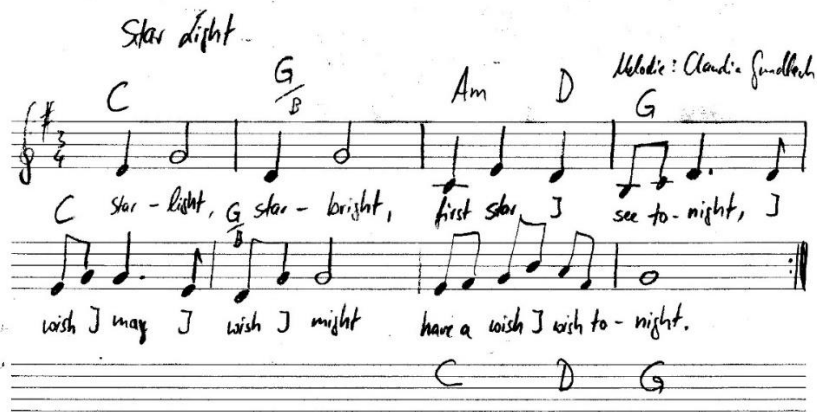 Star Light
Melodie: Claudia Gundlach
C G/B Am D G
3/4
Star - light, star - bright, first star, I see to - night, I
C G/B
wish I may I wish I might have a wish I wish to - night.
C D G